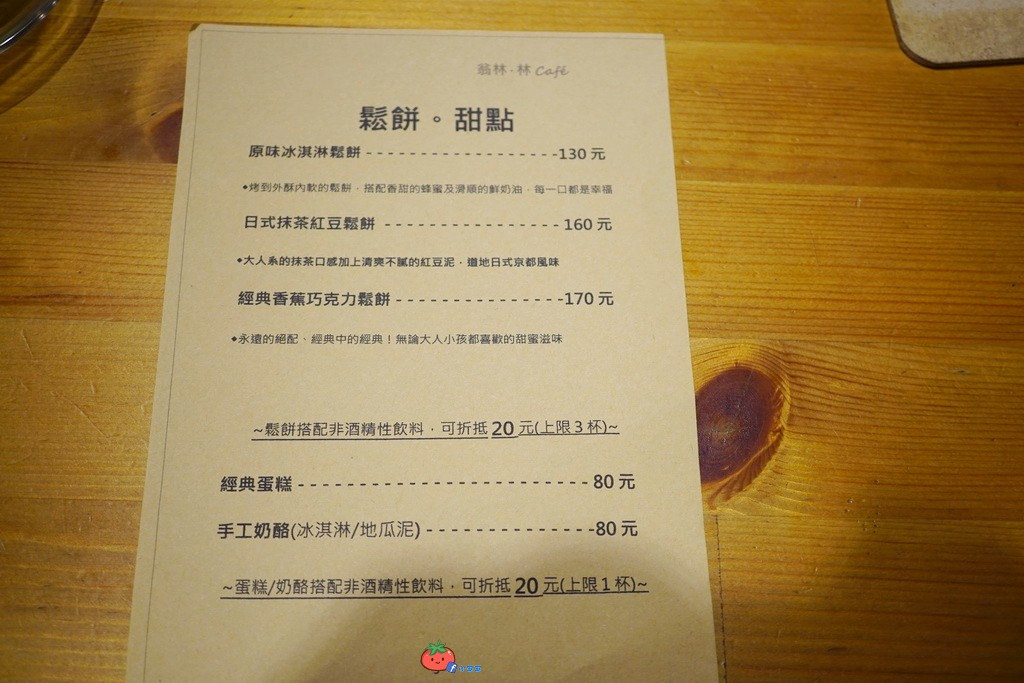 翁林·林 Café
鬆餅。甜點
原味冰淇淋鬆餅------------------130 元
◆烤到外酥內軟的鬆餅，搭配香甜的蜂蜜及滑順的鮮奶油，每一口都是幸福
日式抹茶紅豆鬆餅 ----------------- 160 元
◆大人系的抹茶口感加上清爽不膩的紅豆泥，道地日式京都風味
經典香蕉巧克力鬆餅----------------170 元
◆永遠的絕配、經典中的經典！無論大人小孩都喜歡的甜蜜滋味
~鬆餅搭配非酒精性飲料，可折抵 20 元(上限 3 杯)~
經典蛋糕------------------------- 80 元
手工奶酪(冰淇淋/地瓜泥) ---------------80 元
~蛋糕/奶酪搭配非酒精性飲料，可折抵 20 元(上限 1 杯)~